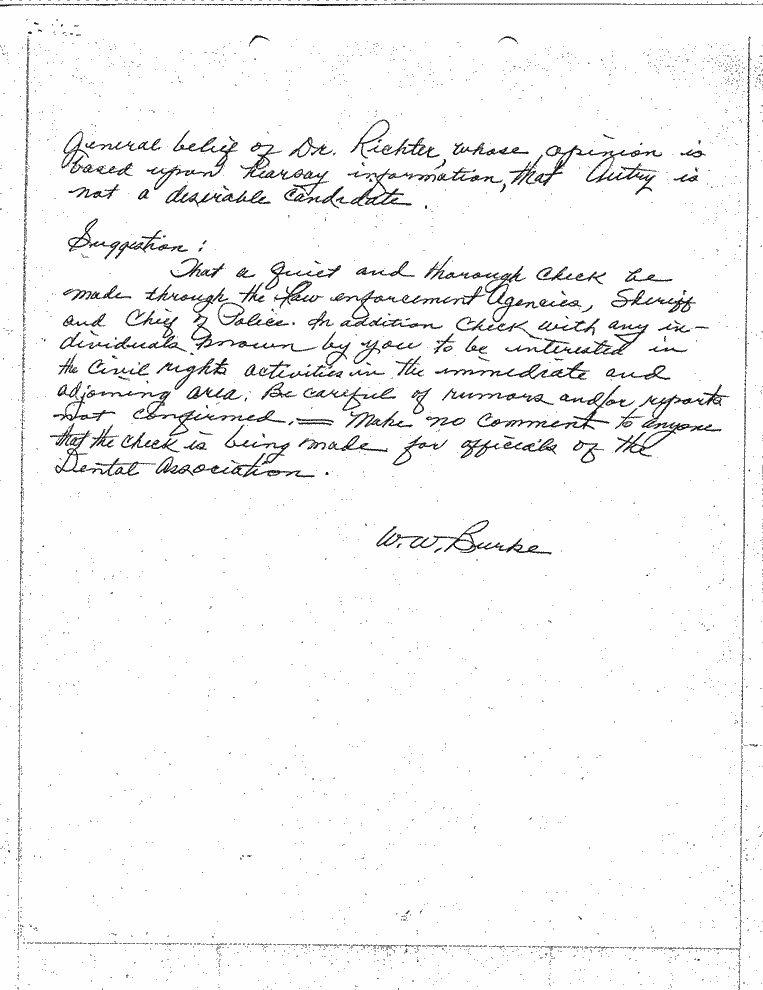 General belief of Dr. Richter, whose opinion is
based upon hearsay information, that Autry is
not a desirable candidate.
Suggestion:
That a quiet and thorough check be
made through the law enforcement Agencies, Sheriff
and Chief of Police. In addition check with any in-
dividuals known by you to be interested in
the Civil rights activities in the immediate and
adjoining area. Be careful of rumors and/or reports
not confirmed. = Make no comment to anyone
that the check is being made for officials of the
Dental Association.
W.W. Burke